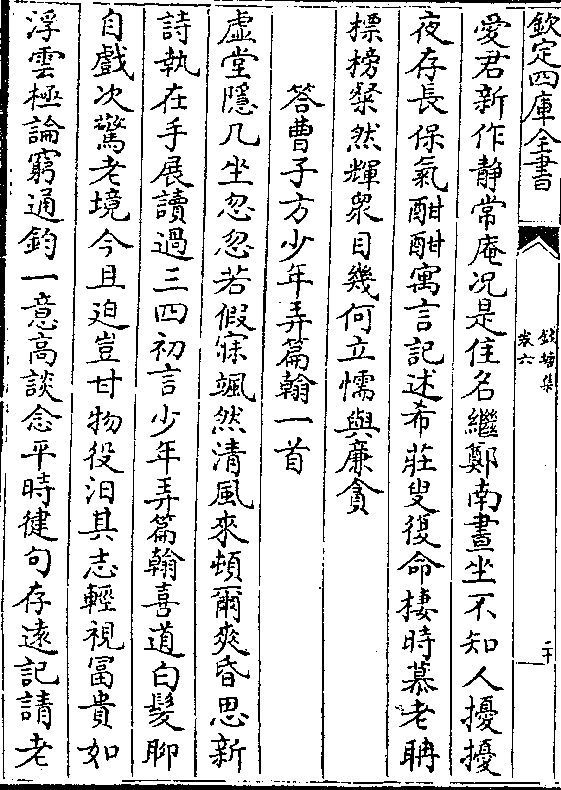 欽定四庫全書
錢塘集
卷六
二十
愛君新作静常庵况是佳名繼鄭南晝坐不知人擾擾
夜存長保氣酣酣寓言記述希莊叟復命棲時慕老聃
標榜粲然輝衆目幾何立懦與廉貪
答曹子方少年弄篇翰一首
虚堂隱几坐忽忽若假寐颯然清風來頓爾爽昏思新
詩執在手展讀過三四初言少年弄篇翰喜道白髪聊
自戲次驚老境今且廹豈甘物役汨其志輕視冨貴如
浮雲極論窮通鈞一意高談念平時健句存遠記請老